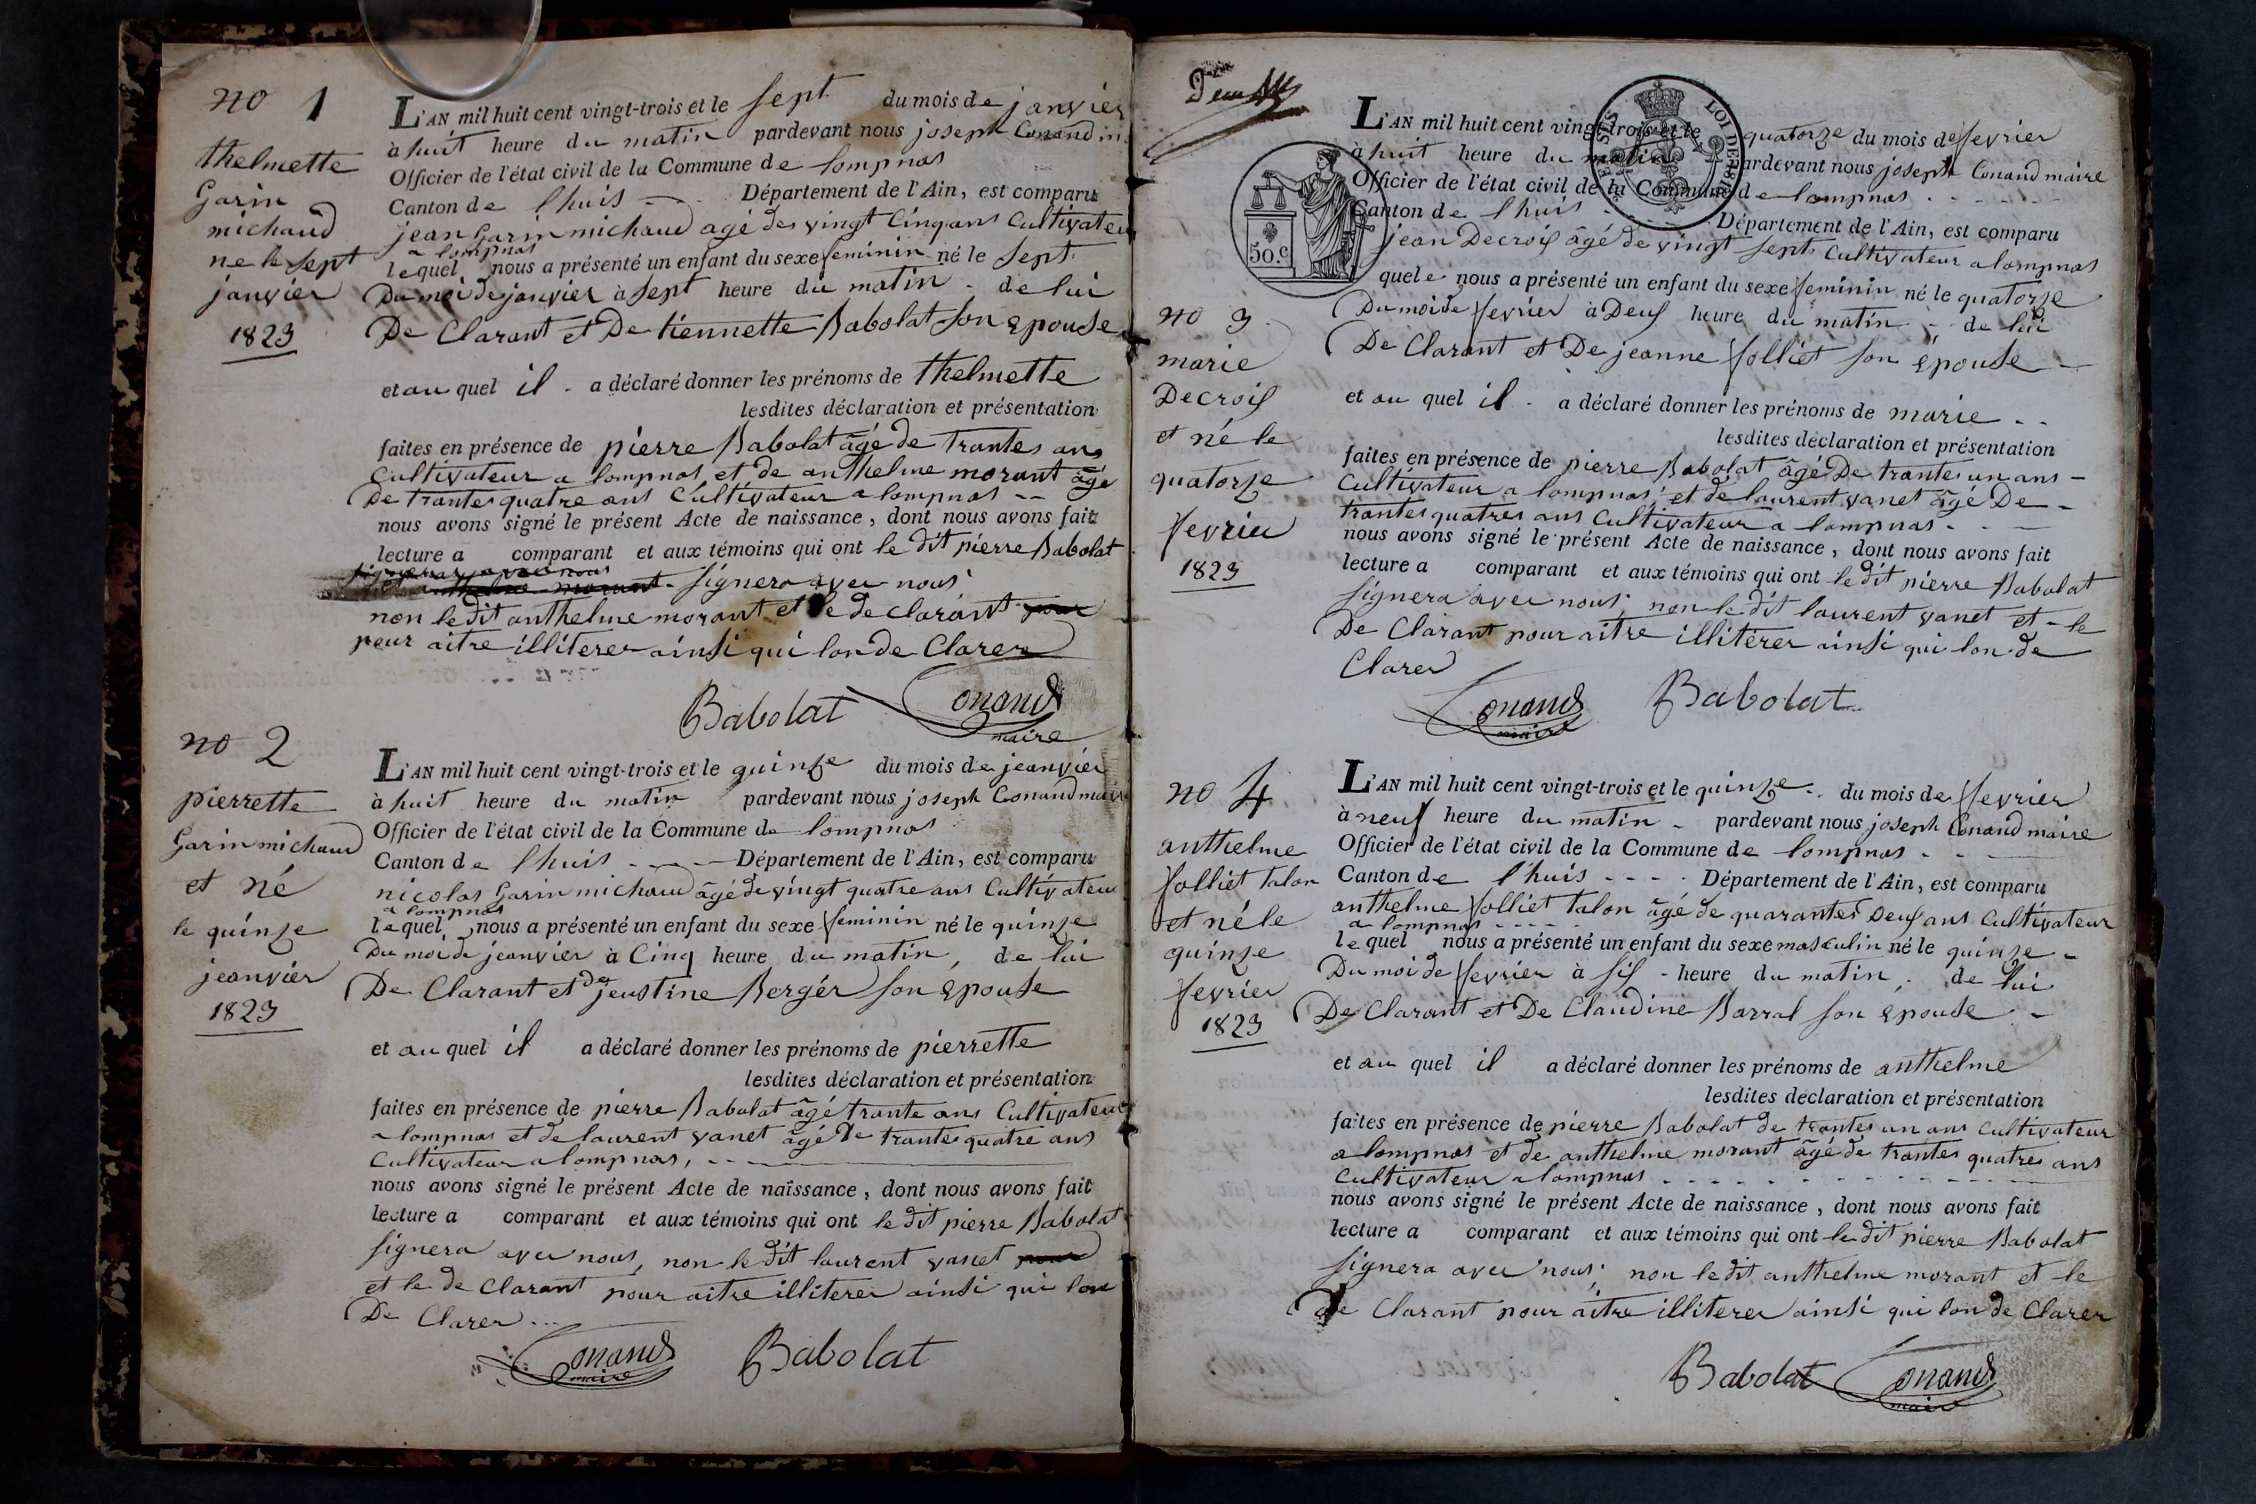 no 1
thelmette
Garin
michaud
ne le sept
janvier
1823
L'AN mil huit cent vingt-trois et le sept du mois de janvier
à huit heure du matin pardevant nous joseph Conand m
Officier de l'état civil de la Commune de lompnas
Canton de lhuis Département de l'Ain, est comparu
jean Garin michaud agé de vingt Cinq ans Cultivateu
a lompnas
lequel nous a présenté un enfant du sexe feminin né le sept
Du moi de janvier à sept heure du matin de lui
De Clarant et De tiennette Babolat son epouse
et au quel il a déclaré donner les prénoms de thelmette
lesdites déclaration et présentation
faites en présence de pierre Babolat âgé de trantes ans
Cultivateur a lompnas et de anthelme morant âgé
De trantes quatre ans Cultivateur a lompnas
nous avons signé le présent Acte de naissance, dont nous avons fait
lecture a comparant et aux témoins qui ont le dit pierre Babolat
et anthelme morant signera avec nous
non le dit anthelme morant et le de clarant pour
peur aitre illiterer ainsi qui lon de Clarer
Babolat Conand
maire
no 2
pierrette
Garin michaud
et né
le quinze
jeanvier
1823
L'AN mil huit cent vingt-trois et le quinze du mois de jeanvier
à huit heure du matin pardevant nous joseph Conand maire
Officier de l'état civil de la Commune de lompnas
Canton de lhuis Département de l'Ain, est comparu
nicolas Garin michaud âgé de vingt quatre ans Cultivateur
a lompnas
lequel nous a présenté un enfant du sexe feminin né le quinze
Du moi de jeanvier à Cinq heure du matin, de lui
De Clarant et de jeustine Berger son epouse
et au quel il a déclaré donner les prénoms de pierrette
lesdites déclaration et présentation
faites en présence de pierre Babolat âgé trante ans Cultivateur
a lompnas et de laurent vanet âgé De trantes quatre ans
Cultivateur a lompnas,
nous avons signé le présent Acte de naissance, dont nous avons fait
lecture a comparant et aux témoins qui ont le dit pierre Babolat
signera avec nous, non le dit laurent vanet pour
et le de Clarant pour aitre illiterer ainsi qui lon
De Clarer...
Conand Babolat
maire
L'AN mil huit cent vingt-trois et le quatorze du mois de fevrier
à huit heure du matin pardevant nous joseph Conand maire
Officier de l'état civil de la Commune de lompnas
Canton de lhuis Département de l'Ain, est comparu
jean Decrois âgé de vingt sept Cultivateur a lompnas
quele nous a présenté un enfant du sexe feminin né le quatorze
Du moi de fevrier à Deux heure du matin de lui
De Clarant et De jeanne folliet son épouse
LOI DE 1816
50.c
no 3
marie
Decrois
et né le
quatorze
fevrier
1823
et au quel il a déclaré donner les prénoms de marie
lesdites déclaration et présentation
faites en présence de pierre Babolat âgé De trantes un ans
Cultivateur a lompnas, et de laurent vanet âgé De
trantes quatres ans Cultivateur a lompnas
nous avons signé le présent Acte de naissance, dont nous avons fait
lecture a comparant et aux témoins qui ont le dit pierre Babolat
signera avec nous, non le dit laurent vanet et le
De Clarant pour aitre illiterer ainsi qui lon de
Clarer
Conand Babolat
maire
no 4
anthelme
folliet talon
et né le
quinze
fevrier
1823
L'AN mil huit cent vingt-trois et le quinze du mois de fevrier
à neuf heure du matin pardevant nous joseph Conand maire
Officier de l'état civil de la Commune de lompnas
Canton de lhuis Département de l'Ain, est comparu
anthelme folliet talon âgé de quarantes Deux ans Cultivateur
a lompnas
lequel nous a présenté un enfant du sexe masculin né le quinze
Du moi de fevrier à six heure du matin, de lui
De Clarant et De Claudine Barral son epouse
et au quel il a déclaré donner les prénoms de anthelme
lesdites déclaration et présentation
faites en présence de pierre Babolat de trantes un ans Cultivateur
a lompnas et de anthelme morant âgé de trantes quatres ans
Cultivateur a lompnas
nous avons signé le présent Acte de naissance, dont nous avons fait
lecture a comparant et aux témoins qui ont le dit pierre Babolat
signera avec nous, non le dit anthelme morant et le
de Clarant pour aitre illiterer ainsi qui lon de Clarer
Babolat Conand
maire